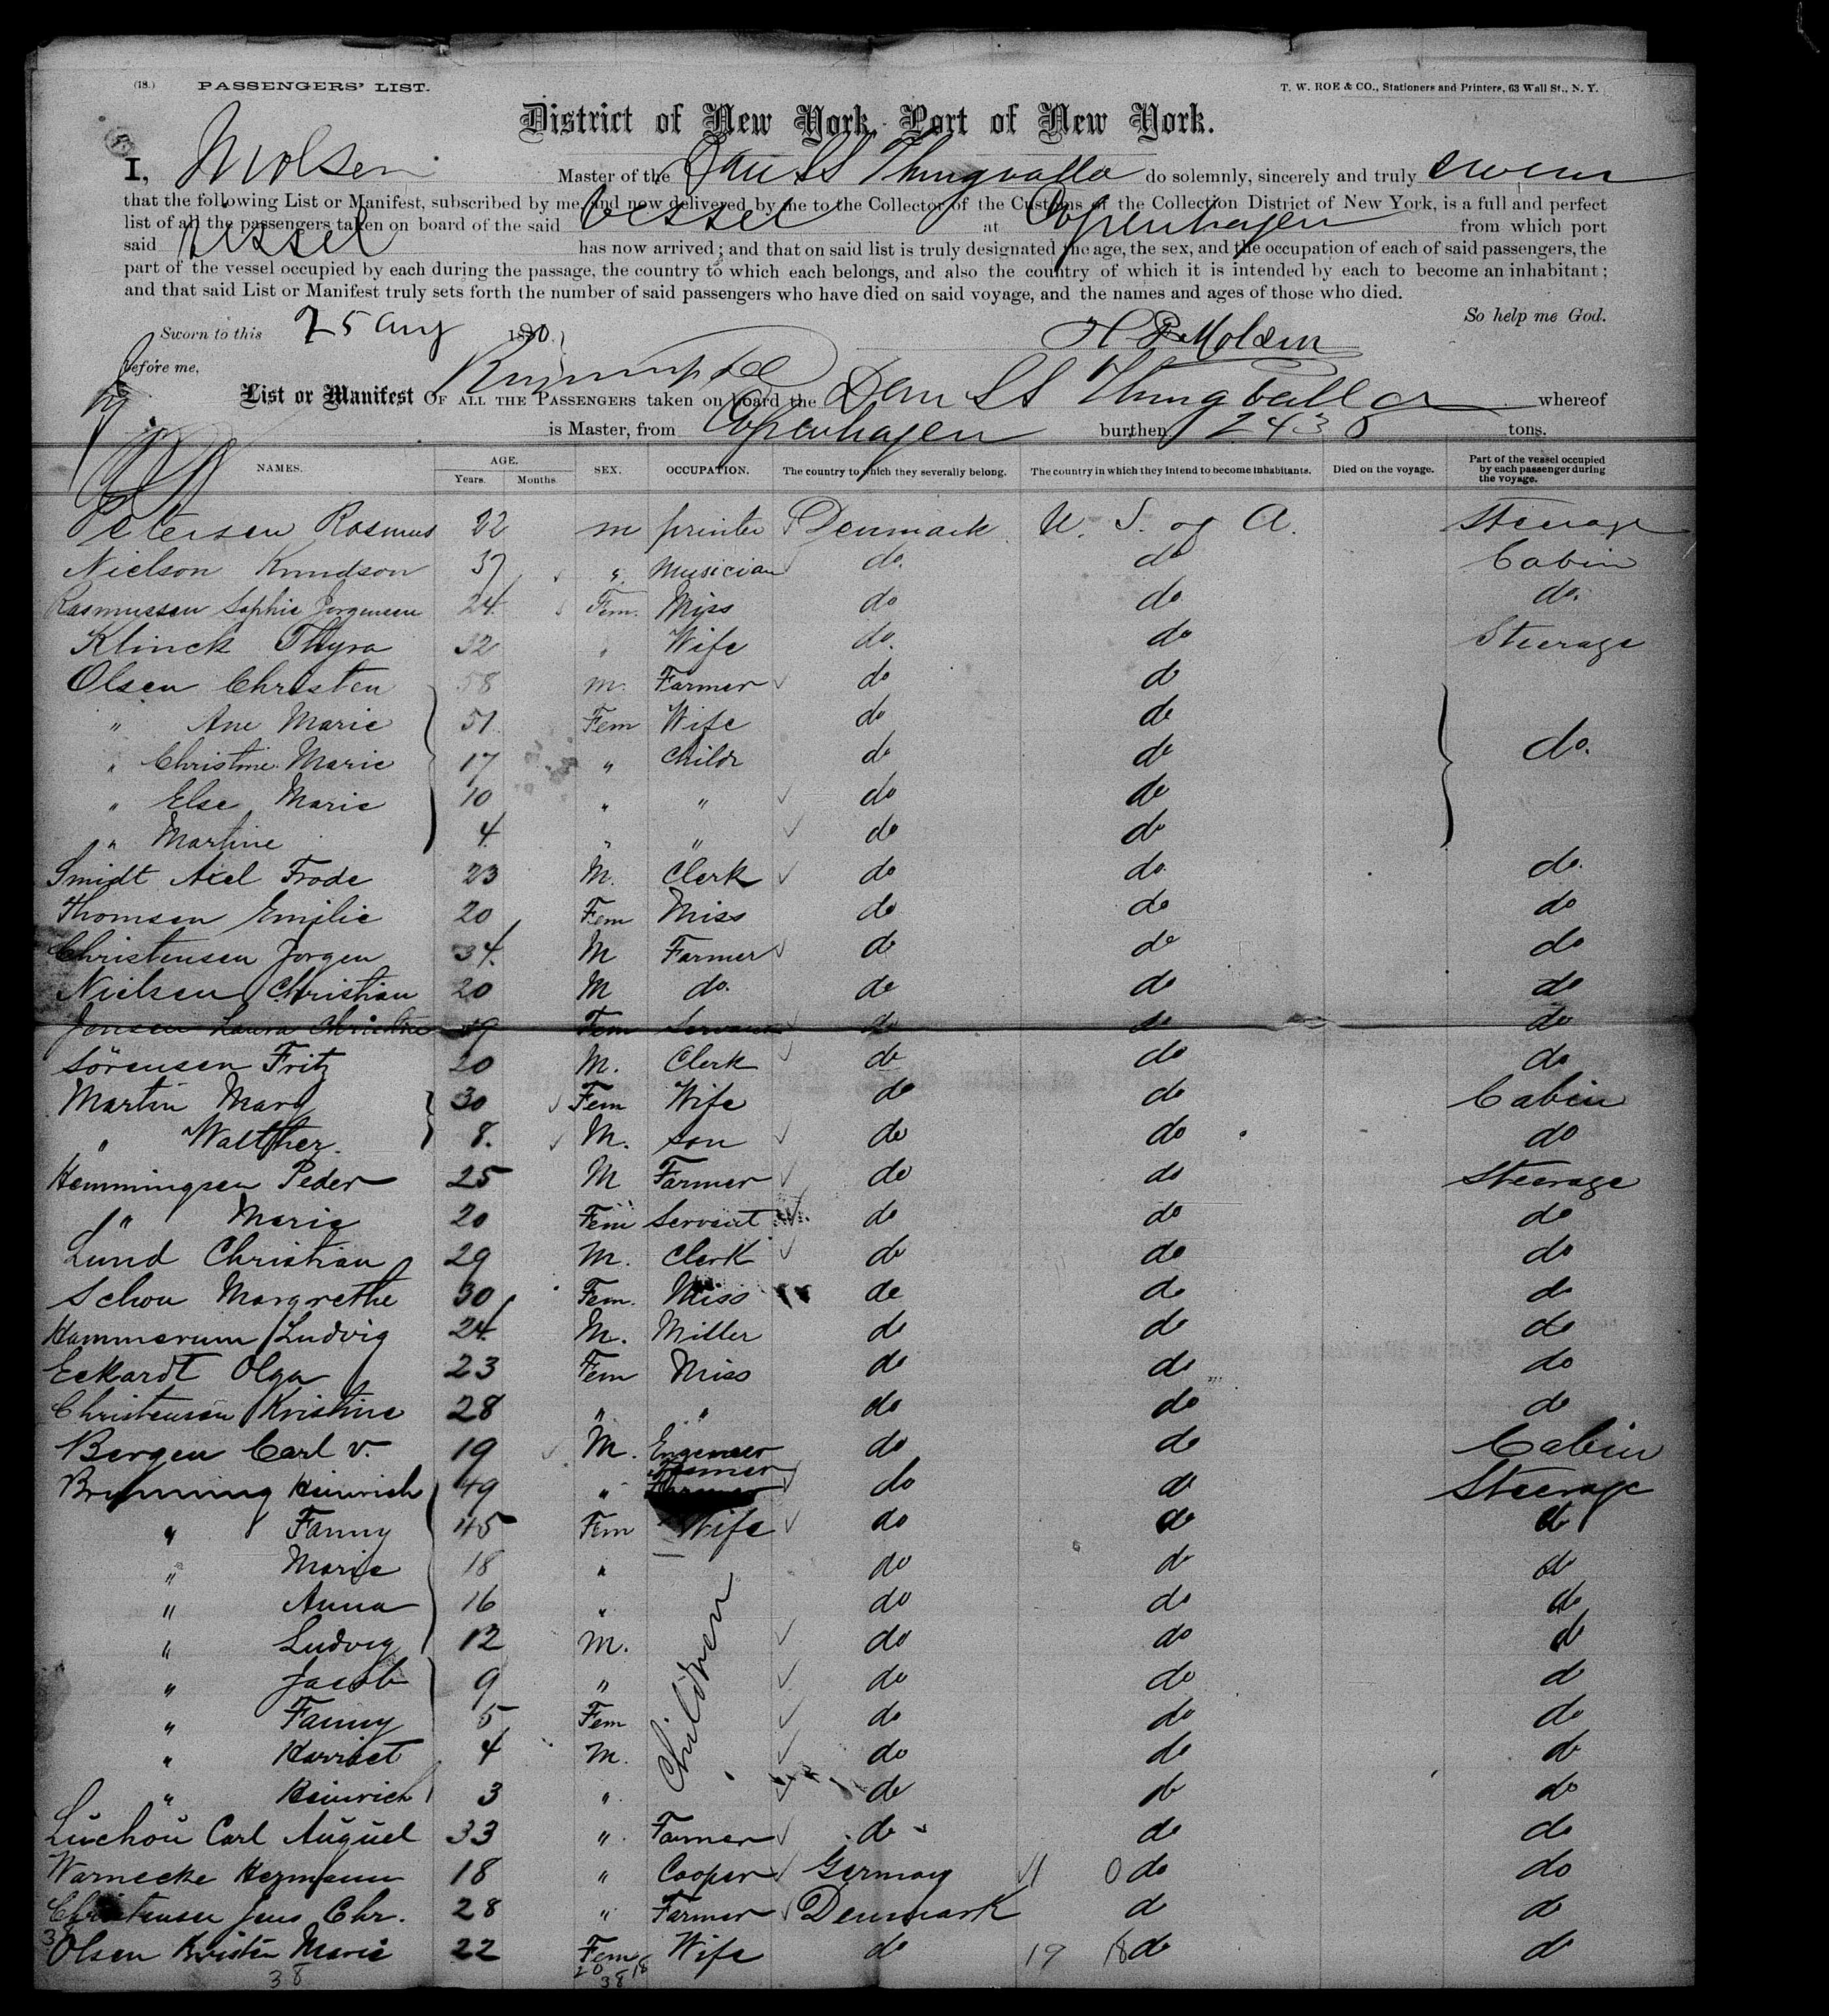 (18.) PASSENGERS' LIST. T. W. ROE & CO., Stationers and Printers, 63 Wall St., N. Y.
District of New York, Port of New York.
I, Molsen Master of the Dan SS Thingvalla do solemnly, sincerely and truly swear
that the following List or Manifest, subscribed by me, and now delivered by me to the Collector of the Customs of the Collection District of New York, is a full and perfect
list of all the passengers taken on board of the said Vessel at Copenhagen from which port
said Vessel has now arrived; and that on said list is truly designated the age, the sex, and the occupation of each of said passengers, the
part of the vessel occupied by each during the passage, the country to which each belongs, and also the country of which it is intended by each to become an inhabitant;
and that said List or Manifest truly sets forth the number of said passengers who have died on said voyage, and the names and ages of those who died.
So help me God.
Sworn to this 25 Aug 1890. Molsen
before me,
List or Manifest OF ALL THE PASSENGERS taken on board the Dan SS Thingvalla whereof
is Master, from Copenhagen burthen 2436 tons.
NAMES. AGE. Years. Months. SEX. OCCUPATION. The country to which they severally belong. The country in which they intend to become inhabitants. Died on the voyage. Part of the vessel occupied by each passenger during the voyage.
Petersen Rasmus 22 m printer Denmark U. S. of A. Steerage
Nielson Knudson 37 " Musician do. do Cabin
Rasmussen Sophie Jorgensen 24 Fem. Miss do do do.
Klinck Thyra 32 " Wife do. do Steerage
Olsen Christen 58 m. Farmer do do
" Ane Marie 51 Fem Wife do do
" Christine Marie 17 " Childr do do do.
" Else Marie 10 " " do do
" Martine 4. " " do do
Smidt Axel Frode 23 M. Clerk do do do.
Thomsen Emilie 20 Fem Miss do do do
Christensen Jorgen 34. M Farmer do do do
Nielsen Christian 20 M do. do do do
Jensen Laura Christine 19 Fem Servant do do do
Sörensen Fritz 20 M. Clerk do do do
Martin Mary 30 Fem Wife do do Cabin
" Walther. 8. M. son do do do
Hemmingsen Peder 25 M Farmer do do Steerage
" Marie 20 Fem Servant do do do
Lund Christian 29 M. Clerk do do do
Schou Margrethe 30 Fem. Miss do do do
Hammerum Ludvig 24. M. Miller do do do
Eckardt Olga 23 Fem Miss do do do
Christensen Kristine 28 " " do do do
Bergen Carl v. 19 M. Engeneer do do Cabin
Brunning Heinrich 49 " Farmer do do Steerage
" Fanny 45 Fem Wife do do do
" Marie 18 " Children do do do
" Anna 16 " do do do
" Ludvig 12 M. do do do
" Jacob 9 " do do do
" Fanny 5 Fem do do do
" Harriet 4 M. do do do
" Heinrich 3 " do do do
Lüchou Carl Auguel 33 " Farmer do do do
Warnecke Hermann 18 " Cooper Germany 0 do do
Christensen Jens Chr. 28 " Farmer Denmark do do
Olsen Kristen Marie 22 Fem Wife do 19 18 do do
38 20 18
38